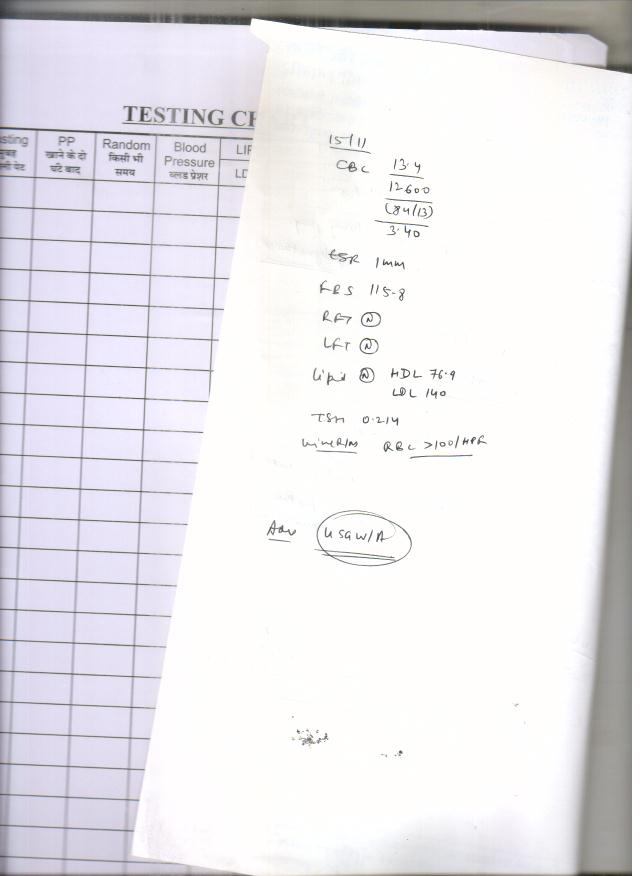 TESTING CH
sting PP Random Blood LIP
खाने के दो किसी भी Pressure LD
घंटे बाद समय ब्लड प्रेशर
15/11
CBC 13.4
12600
(84/13)
3.40
ESR 1mm
FBS 115.8
RFT N
LFT N
Lipid N HDL 76.9
LDL 140
TSH 0.214
Urine R/M RBC >100/HPF
Adv USG W/A